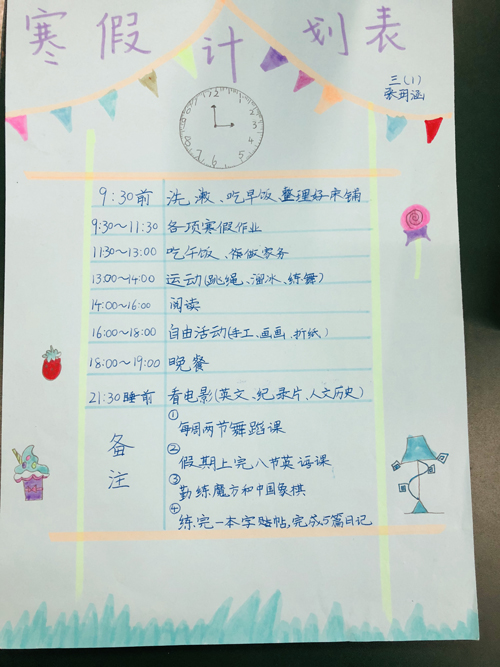 寒假计划表
三(1)
张玥涵
12
1
2
3
4
5
6
7
8
9
10
11
9:30前 洗漱、吃早饭、整理好床铺
9:30~11:30 各项寒假作业
11:30~13:00 吃午饭、帮做家务
13:00~14:00 运动(跳绳、溜冰、练舞)
14:00~16:00 阅读
16:00~18:00 自由活动(手工、画画、折纸)
18:00~19:00 晚餐
21:30睡前 看电影(英文、纪录片、人文历史)
备注
① 每周两节舞蹈课
② 假期上完八节英语课
③ 勤练魔方和中国象棋
④ 练完一本字贴帖,完成5篇日记